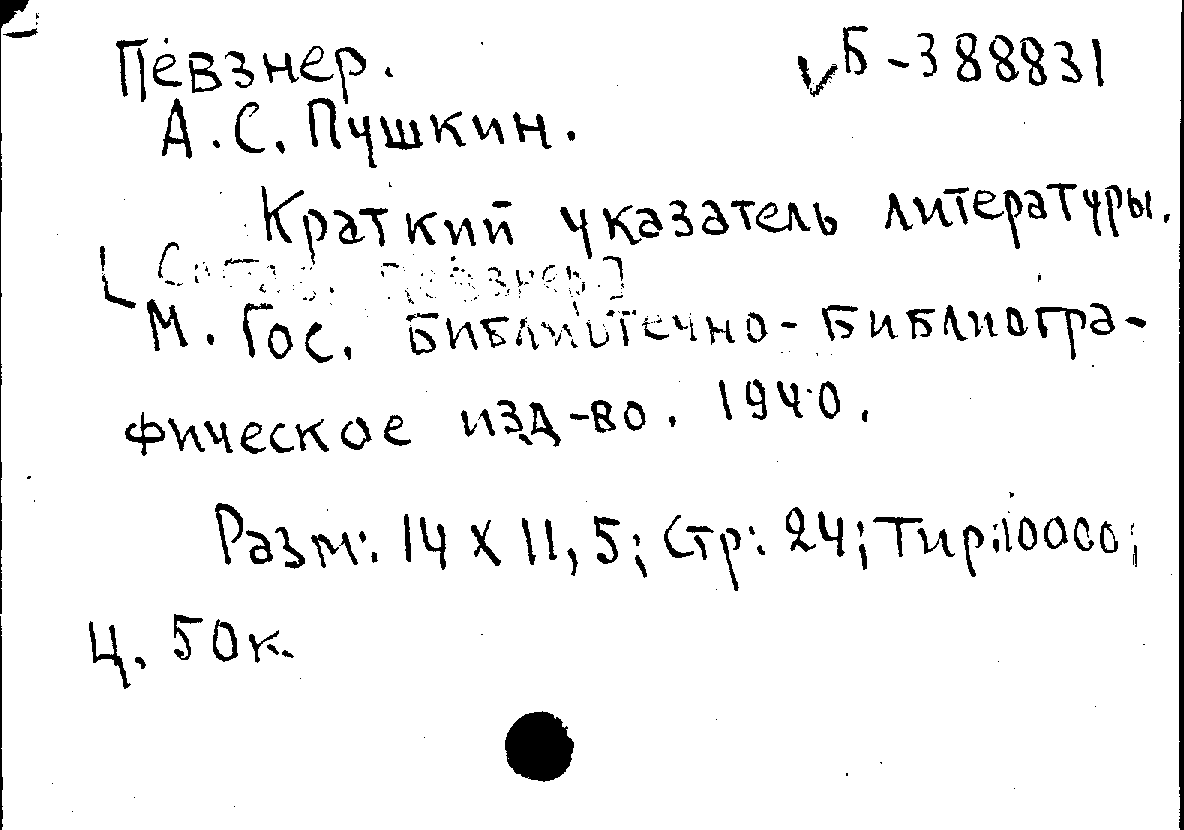 Певзнер. √Б-388831
А.С. Пушкин.
Краткий указатель литературы.
[Состав. Певзнер]
М. Гос. Библиотечно-Библиогра-
фическое изд-во. 1940.
Разм: 14 x 11,5; Стр: 24; Тир: 10000;
Ц. 50к.